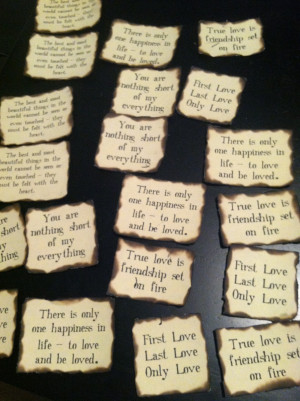 The best and most
beautiful things in the
world cannot be seen or
even touched - they
must be felt with the
heart.
There is only
one happiness in
life - to love
and be loved.
True love is
friendship set
on fire
The best and most
beautiful things in the
world cannot be seen or
even touched - they
must be felt with the
heart.
You are
nothing short
of my
everything
First Love
Last Love
Only Love
The best and most
beautiful things in the
world cannot be seen or
even touched - they
must be felt with the
heart.
You are
nothing short
of my
everything
There is only
one happiness in
life - to love
and be loved.
The best and most
beautiful things in the
world cannot be seen or
even touched - they
must be felt with the
heart.
There is only
one happiness in
life - to love
and be loved.
True love is
friendship set
on fire
short
You are
nothing short
of my
everything
True love is
friendship set
on fire
First Love
Last Love
Only Love
There is only
one happiness in
life - to love
and be loved.
First Love
Last Love
Only Love
True love is
friendship set
on fire